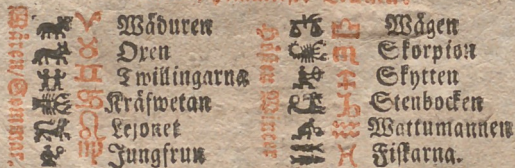 Wåren/Sommar.
Wäduren
Oxen
Twillingarna
Kräfwetan
Lejonet
Jungfrun
Höst Winter
Wågen
Skorpion
Skytten
Stenbocken
Wattumannen
Fiskarna.